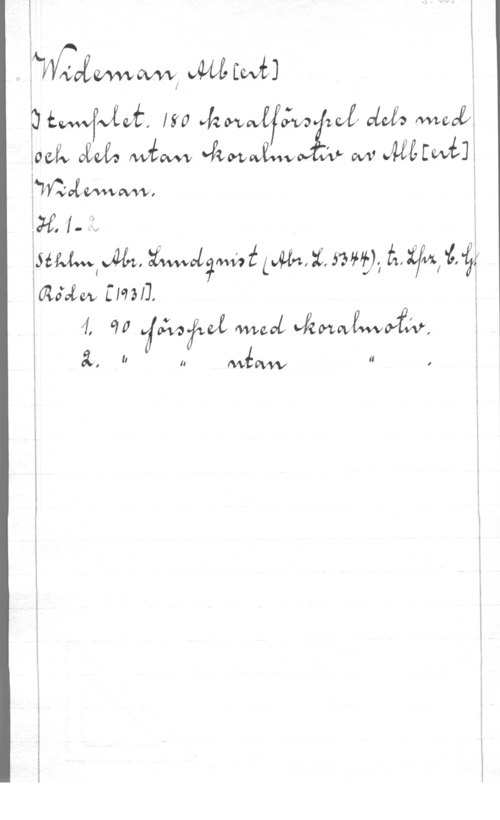 Wideman, Alb[ert]
I templet. 180 koralförspel dels med
och dels utan koralmotiv av Alb[ert]
Wideman.
H. 1-2
Sthlm, Abr. Lundqvist (Abr. L. 5344); tr. Lpz, C. G.
Röder [1931].
1. 90 förspel med koralmotiv.
2. " " utan " .